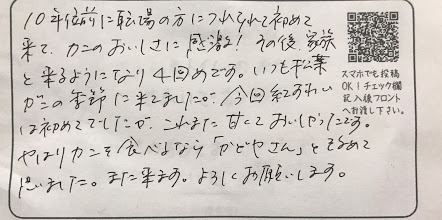 10年位前に職場の方につれられて初めて
来て、カニのおいしさに感激！その後、家族
と来るようになり4回めです。いつも松葉
ガニの季節に来てましたが、今回紅ずわい
は初めてでしたが、これまた甘くておいしかったです。
やはりカニを食べるなら「かどやさん」と改めて
思いました。また来ます。よろしくお願いします。
スマホでも投稿
OK！チェック欄
記入後フロント
へお渡し下さい。